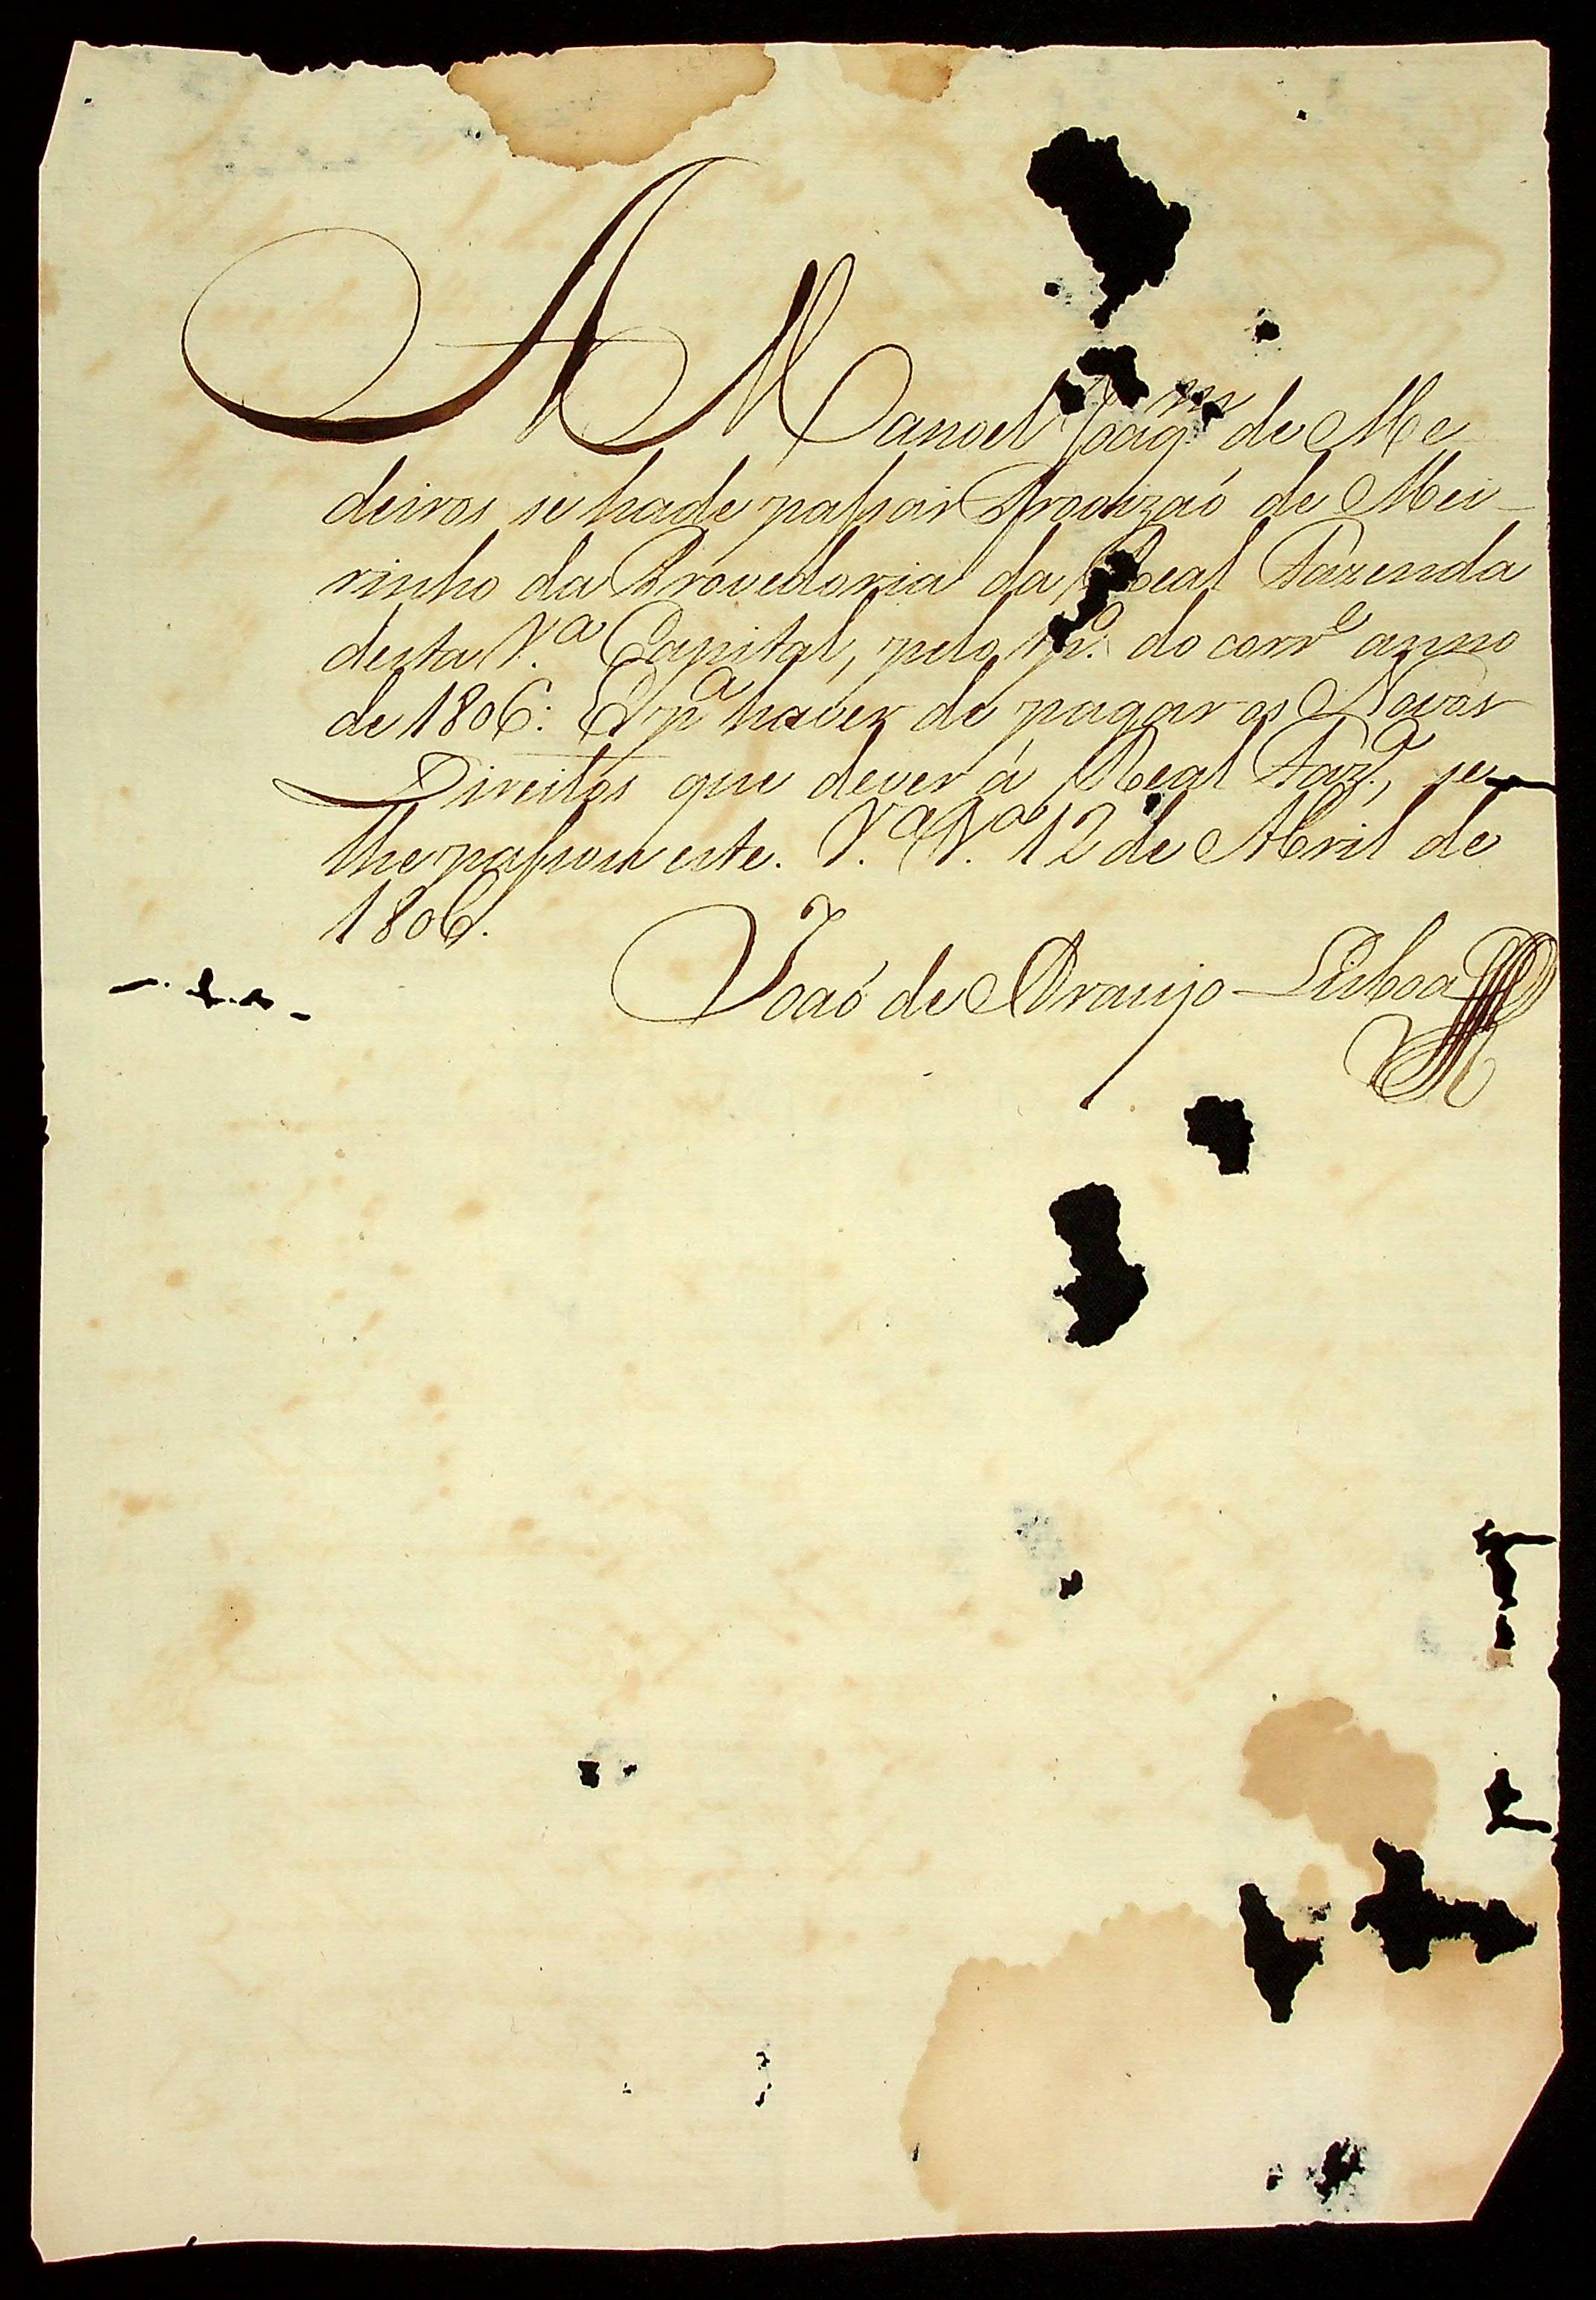 A Manoel Joaq.m de Me
deiros se hade passar Provizaõ de Mei-
rinho da Provedoria da Real Fazenda
desta V.a Capital, pelo do corr.e anno
de 1806: E p.a haver de pagar os Novos
Direitos que dever á Real Faz.a, se
lhe passou este. V.a V.a 12 de Abril de
1806.
Joaõ de Araujo Lisboa